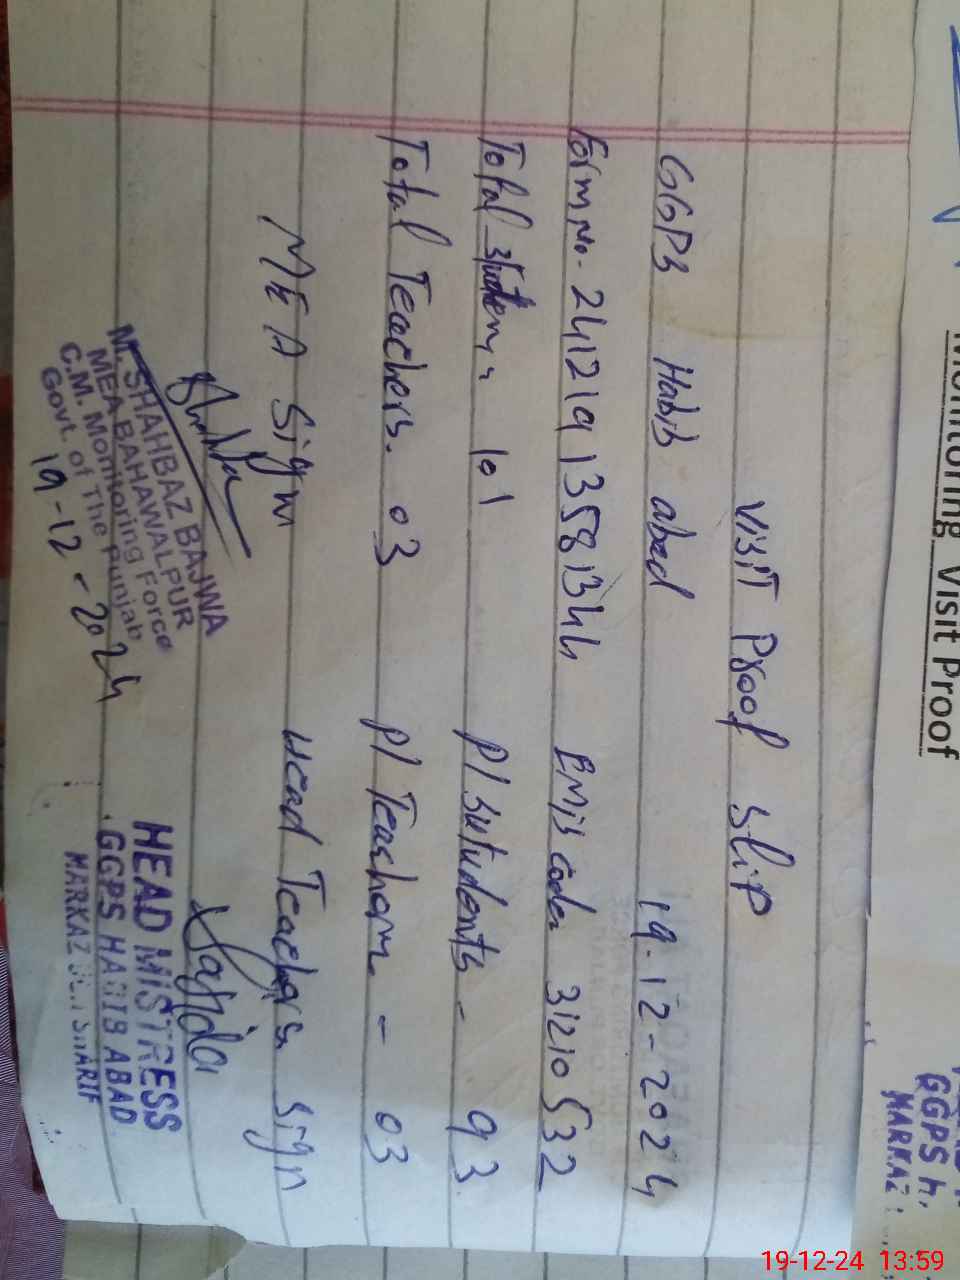 Monitoring Visit Proof
Visit Proof Slip
GGPS Habib abad 19-12-2024
Form No. 24121913581344 EMIS code. 31210532
Total Students 101 P/Sutudents - 93
Total Teachers. 03 P/Teachers - 03
MEA Sign Head Teachers Sign
Sajida
M. SHAHBAZ BAJWA
MEA BAHAWALPUR
C.M. Monitoring Force
Govt. of The Punjab
19-12-2024
HEAD MISTRESS
GGPS HABIB ABAD
MARKAZ SHARIF
GGPS H.
MARKAZ
19-12-24 13:59